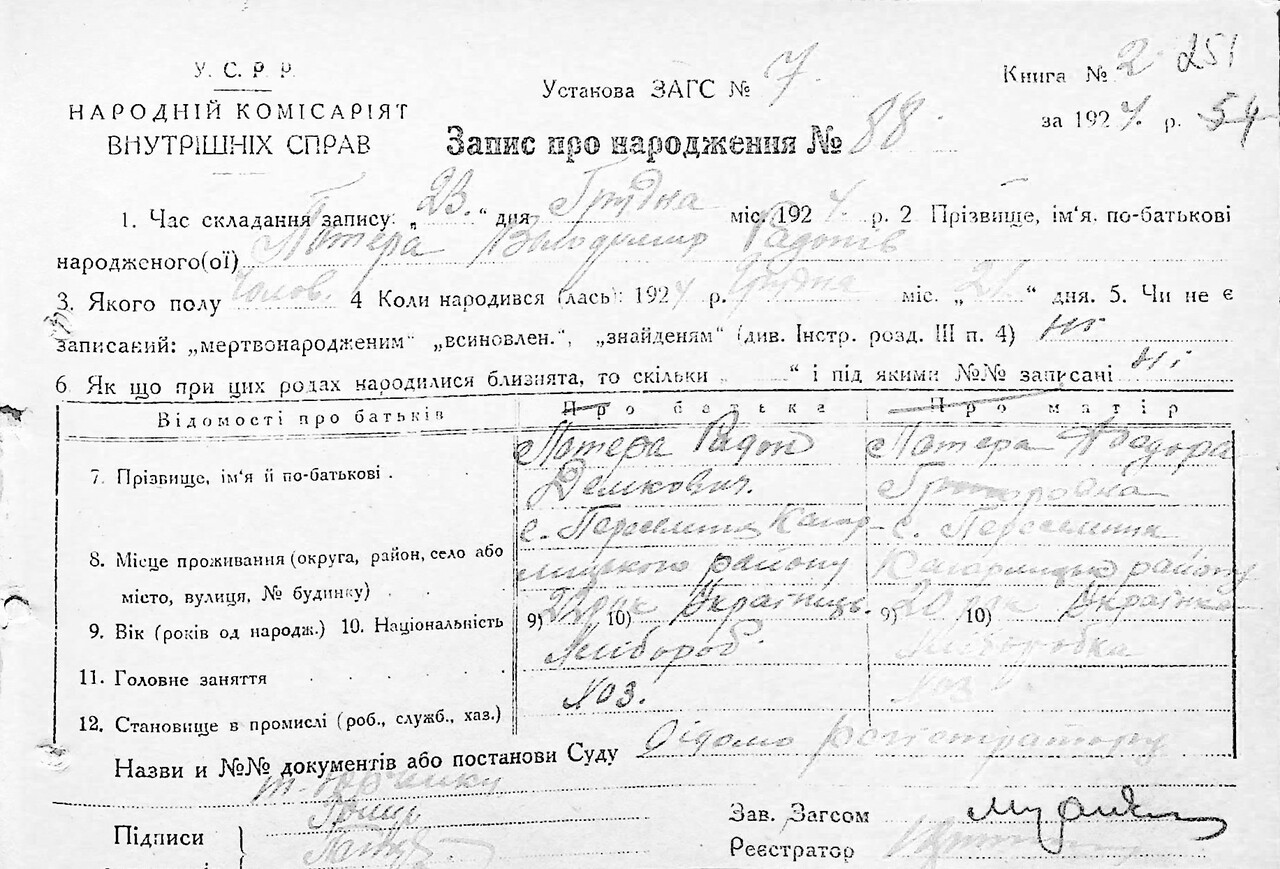 У. С. Р. Р.
НАРОДНІЙ КОМІСАРІЯТ
ВНУТРІШНІХ СПРАВ
Установа ЗАГС № 7.
Книга № 2 251
за 1924. р. 54
Запис про народження № 88.
1. Час складання запису: „23.“ дня Грудна міс. 1924. р. 2 Прізвище, ім'я, по-батькові
народженого(ої) Потера Володимир Радонів
3. Якого полу Чолов. 4 Коли народився (лась): 1924 р. Грудна міс. „21“ дня. 5. Чи не є
записаний: „мертвонародженим“ „всиновлен.“, „знайденям“ (див. Інстр. розд. III п. 4) Ні
6 Як що при цих родах народилися близнята, то скільки „ “ і під якими №№ записані Ні
Відомості про батьків Про батька Про матір
7. Прізвище, ім'я й по-батькові . Потера Радон Демкович. Потера Теодора
8. Місце проживання (округа, район, село або місто, вулиця, № будинку) с. Переселення Кагарлицького району с. Переселення Кагарлицько району
9. Вік (років од народж.) 10. Національність 9) 22 рок 10) Українець. 9) 20 рок 10) Українка
11. Головне заняття Хлібороб. Хлібробка
12. Становище в промислі (роб., служб., хаз.) Хоз. Хоз
Назви и №№ документів або постанови Суду Відомо регістратору
Підписи
Зав. Загсом
Реєстратор